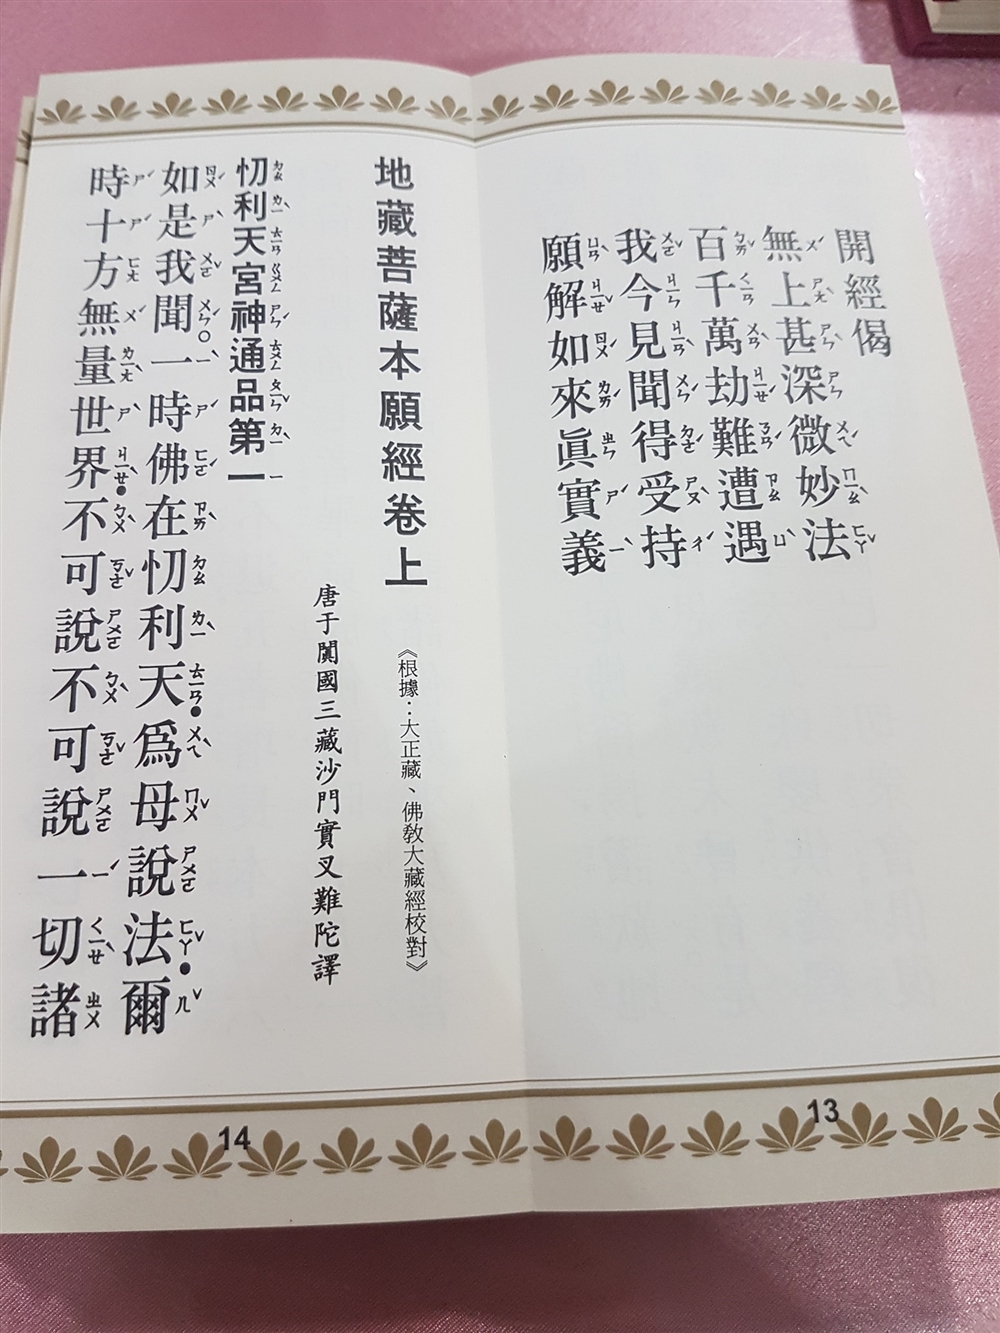 開經偈
無上甚深微妙法
百千萬劫難遭遇
我今見聞得受持
願解如來眞實義
13
地藏菩薩本願經卷上
《根據：大正藏、佛教大藏經校對》
唐于闐國三藏沙門實叉難陀譯
忉利天宮神通品第一
如是我聞。一時佛在忉利天。為母說法。爾
時十方無量世界。不可說不可說一切諸
14